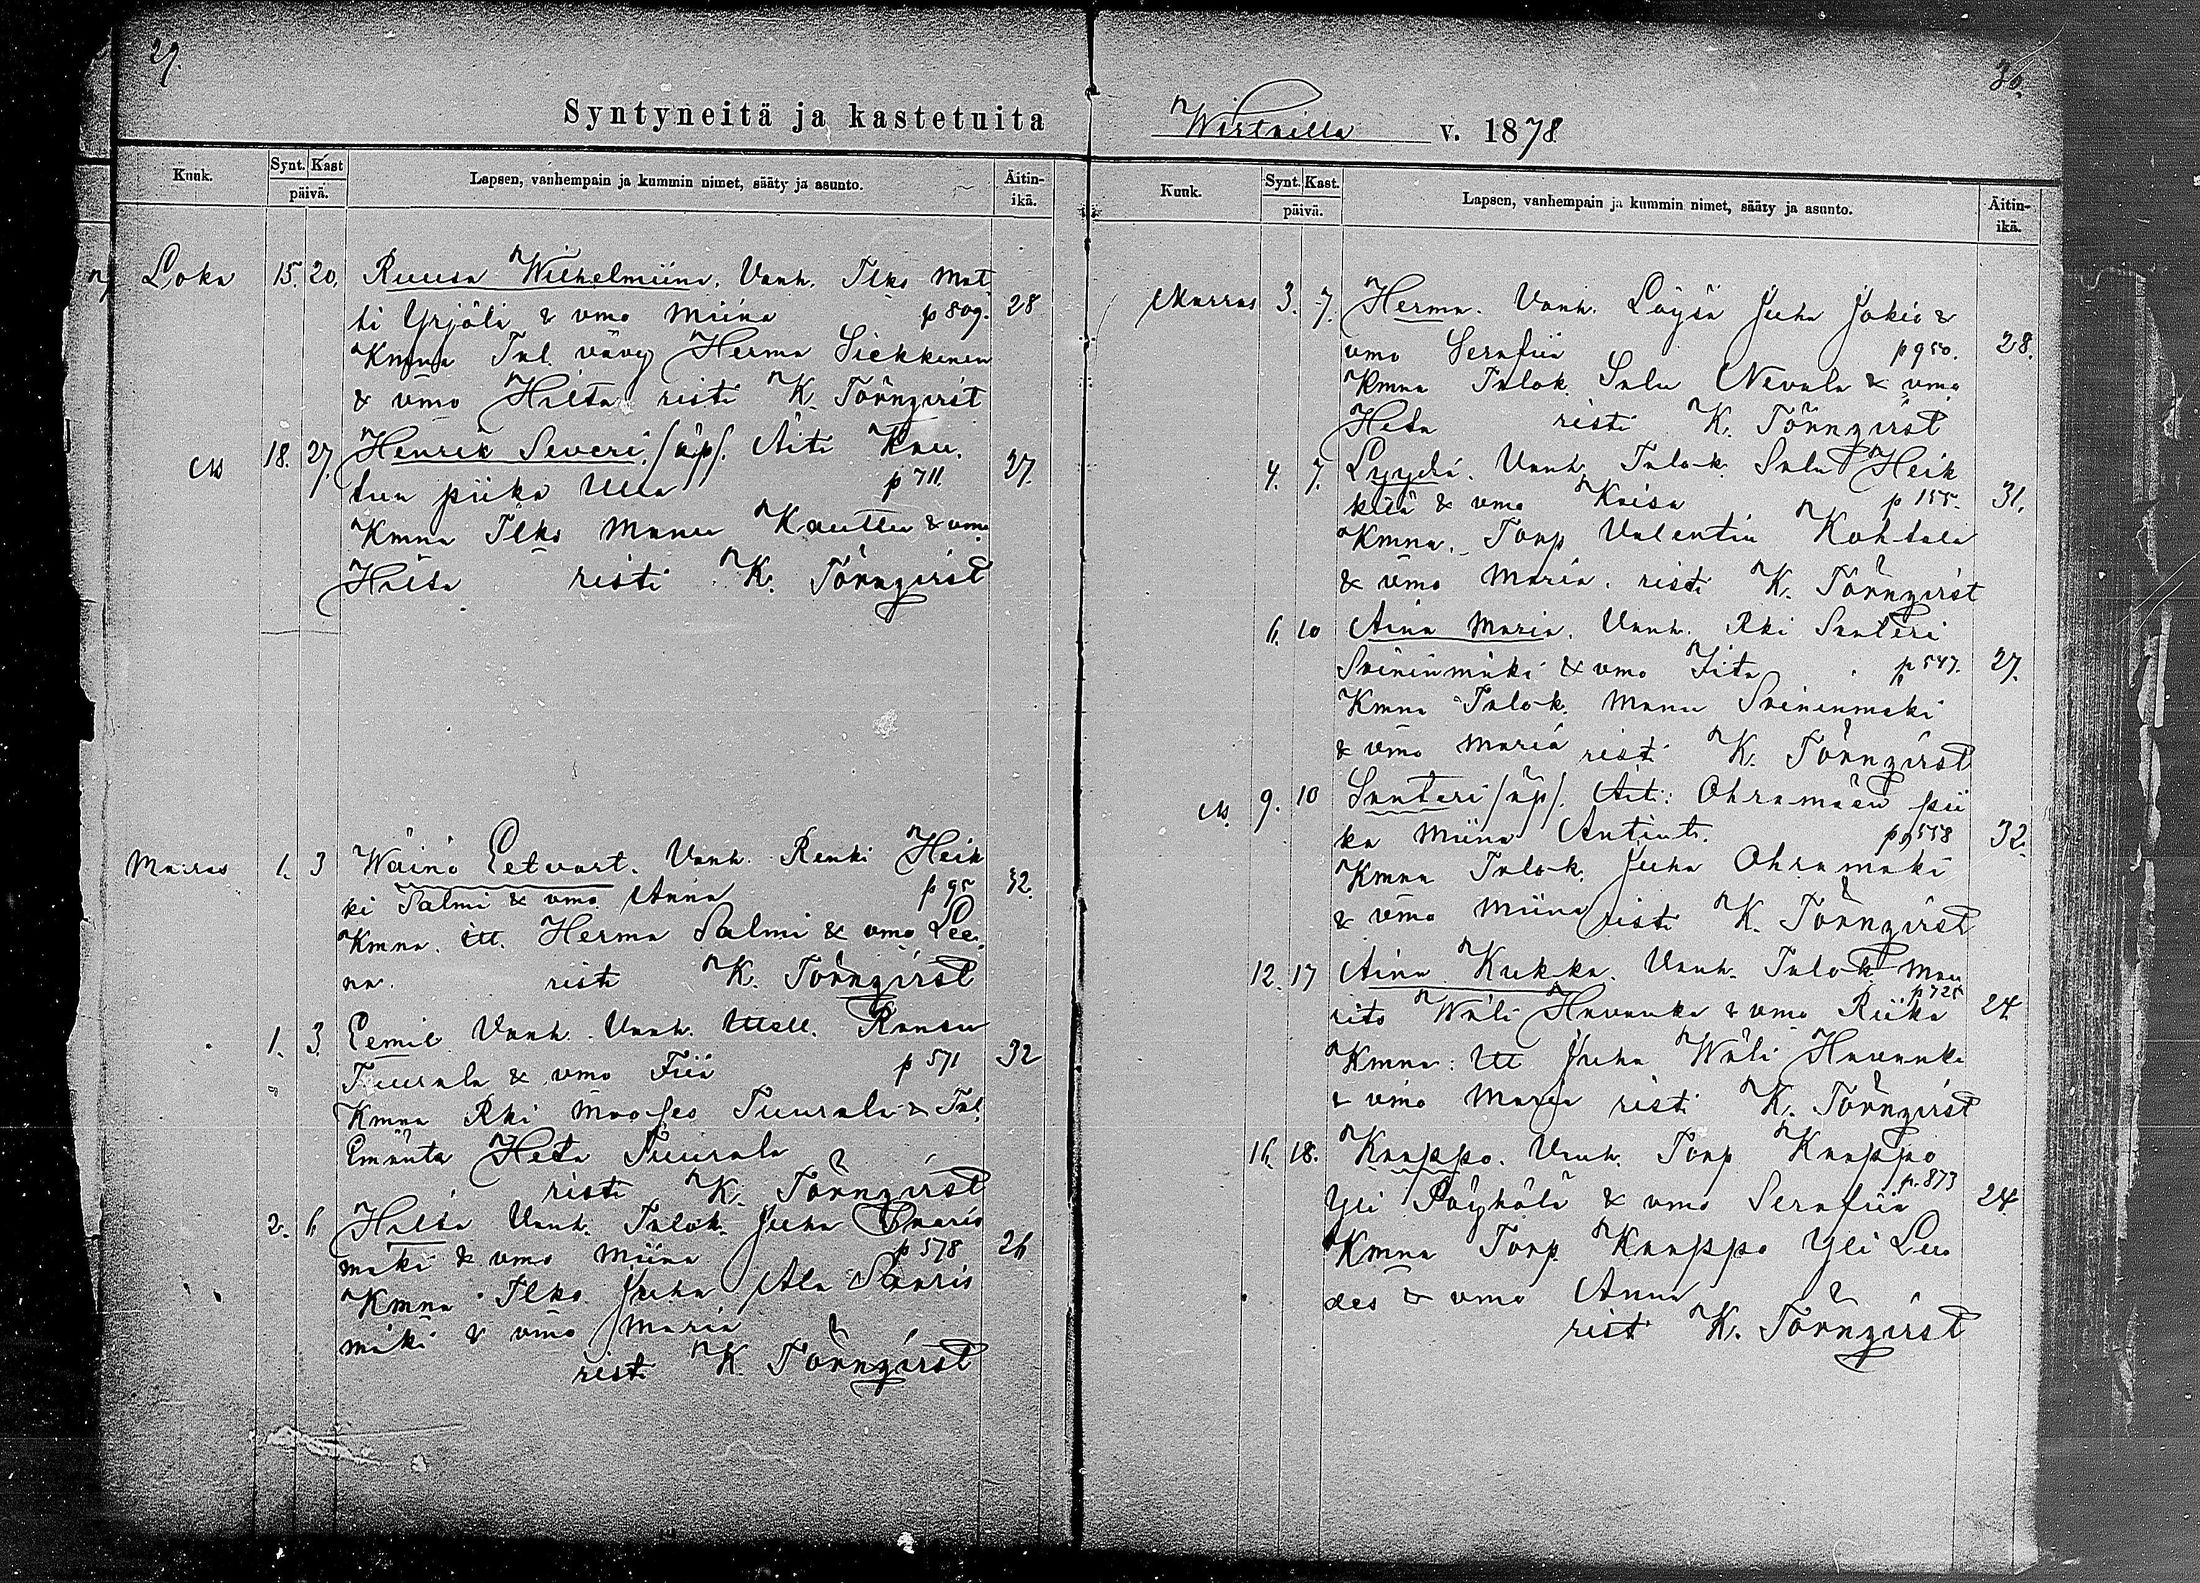 29.
Syntyneitä ja kastetuita
Kuuk.
Synt. Kast
päivä.
Lapsen, vanhempain ja kummin nimet, sääty ja asunto.
Äitin-
ikä.
Loka 15. 20. Ruusa Wilhelmiina. Vanh. Tlks Mat
ti Yrjölä & vmo Miina p 809. 28
Kmna Tal. vävy Herma Siekkinen
& vmo Hilta risti K. Törnqvist
18. 27. Henrik Severi /äp/. Äiti Kau.
tun piika Ulla p 711. 27.
Kmna Tlks Manu Kauttu & vmo
Hilta risti K. Törnqvist
Marras 1. 3 Wäinö Eetvart. Vanh. Renki Heik
ki Salmi & vmo Anna p 95 32.
Kmna. Itt. Herma Salmi & vmo Lee
na. risti K. Törnqvist
1. 3. Eemil Vanh. Vanh. Itell. Ransu
Tuurala & vmo Fiia p 571 32
Kmna Rki Mooses Tuurala & Tal
Emäntä Heta Tuurala
risti K. Törnqvist
2. 6 Hilta Vanh. Talok. Juha Saaris
mäki & vmo Miina p 578 26
Kmna Tlks Juha Ala Saaris
mäki & vmo Maria
risti K Törnqvist
30.
Wirtailla v. 1878
Kuuk.
Synt. Kast.
päivä.
Lapsen, vanhempain ja kummin nimet, sääty ja asunto.
Äitin-
ikä.
Marras 3. 7. Herma. Vanh. Löysä Juha Jokio &
vmo Serafiia p 950. 28.
Kmna Talok. Salu Nevala & vmo
Heta risti K. Törnqvist
4. 7. Lyydi. Vanh. Talok. Salu Heik
kilä & vmo Kaisa p 155. 31.
Kmna. Torp Valentin Kohtala
& vmo Maria. risti K. Törnqvist
6. 10 Aina Maria. Vanh. Rki Santeri
Soininmäki & vmo Fita p 547. 27.
Kmna Talok. Manu Soininmäki
& vmo Maria risti K. Törnqvist
9. 10 Santeri /äp/. Äit: Ohramäen pii
ka Miina Antint. p 558 32.
Kmna Talok. Juha Ohramäki
& vmo Miina risti K. Törnqvist
12. 17 Aina Kukka. Vanh. Talok Mau
p 725
rits Wäli Havanka & vmo Riika 24
Kmna: Itt Juha Wäli Havanka
& vmo Maria risti K. Törnqvist
16. 18. Kaappo. Vanh. Torp Kaappo
Yli Pöyhölä & vmo Serafiia p. 873 24
Kmna Torp. Kaappo Yli Luo
des & vmo Anna
risti K. Törnqvist